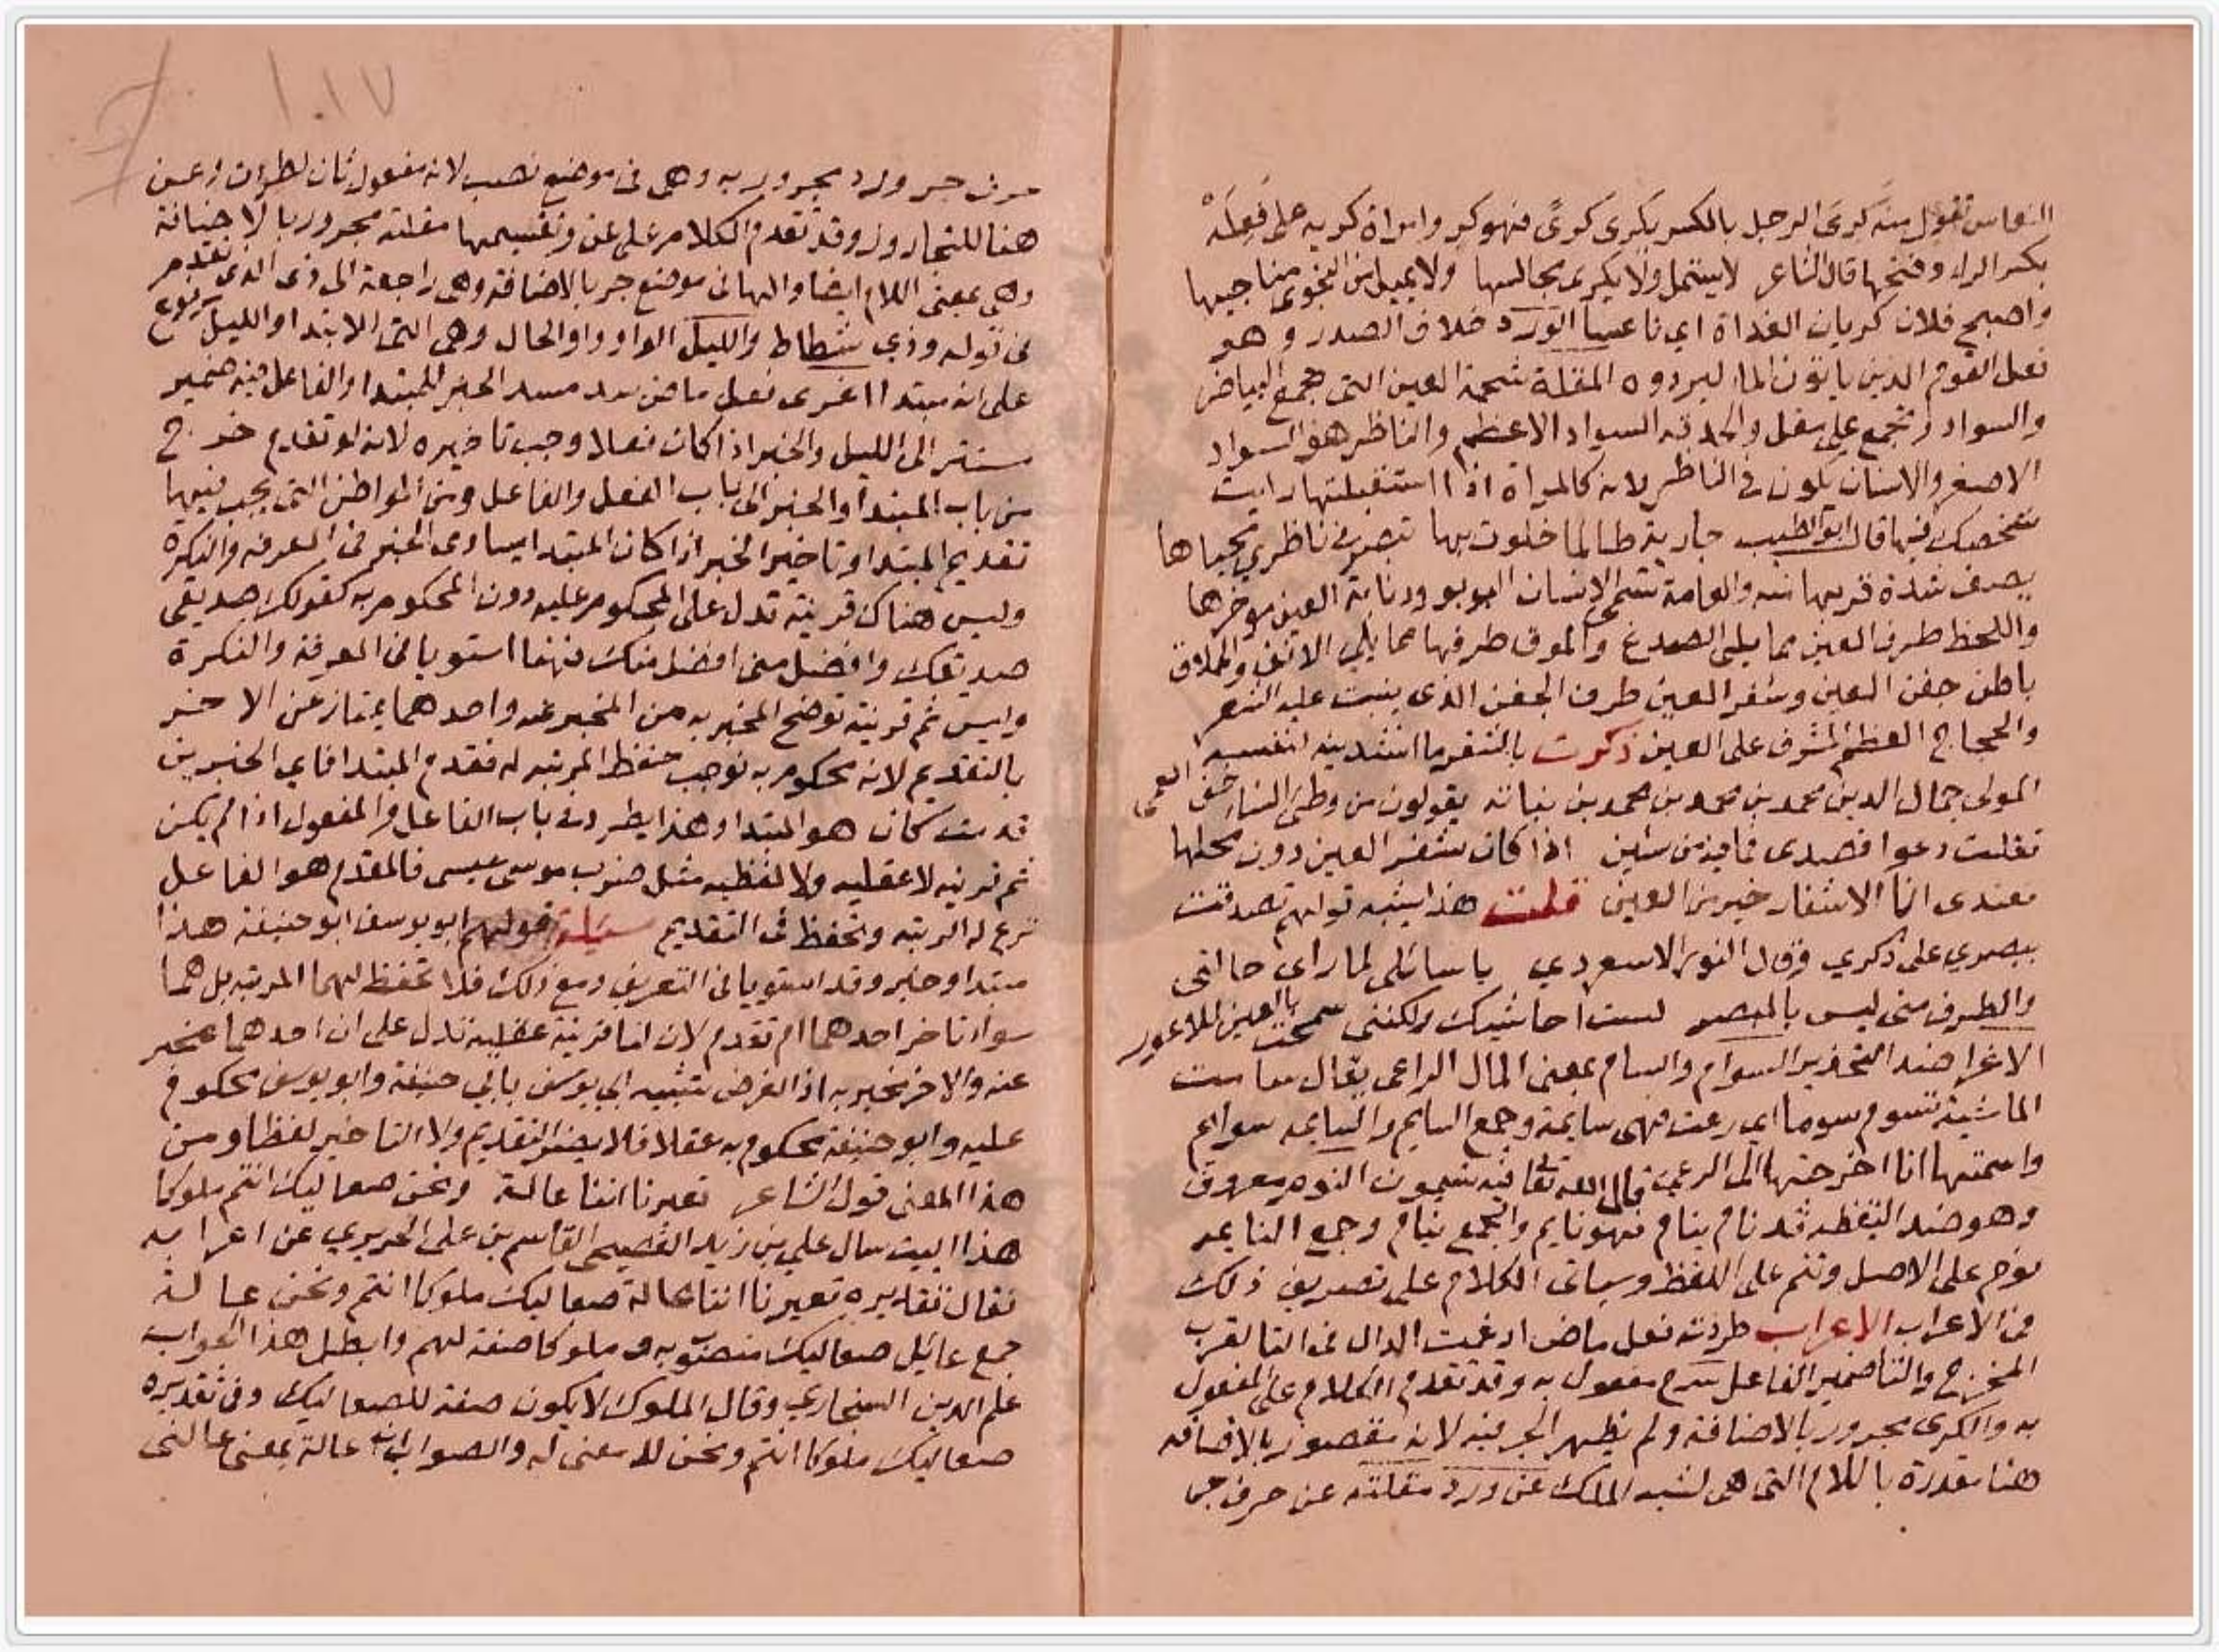 النعاس تقول منه كرى الرجل بالكسر يكرى كرىً فهو كرٍ وامراة كريه على فَعِلَهْ
بكسر الراء وفتحها قال الشاعر لا يستمل ولا يكرى مجالسها ولا يميل من النجوى مناجيها
واصبح فلان كريان الغداة اي ناعسا الورد خلاف الصدر وهو
فعل القوم الذين ياتون الماء ليردوه المقلة شحمة العين التى تجمع البياض
والسواد وتجمع على مقل والحدقه السواد الاعظم والناظر هو السواد
الاصغر والانسان يكون في الناظر لانه كالمراة اذا استقبلتها رايت
شخصك فيها قال ابو الطيب جارية طالما خلوت بها تبصر في ناظري محياها
يصف شدة قربها منه والعامة تسمى الانسان البوبو وذنابة العين موخرها
واللحظ طرف العين مما يلى الصدغ والموق طرفها مما يلي الانف والحملاق
باطن جفن العين وشفر العين طرف الجفن الذى ينبت عليه الشعر
والحجاج العظم المشرف على العين ذكرت بالشفر ما انشدنيه لنفسه
المولى جمال الدين محمد بن محمد بن محمد بن نباته يقولون من وطئ النساء خف العمى
فقلت دعوا قصدى فما فيه من شين اذا كان شفر العين دون محلها
فعندى انا الاشفار خير من العين قلت هذا يشبه قولهم تصدقت
ببصري على ذكري وقال النور الاسعردي ياسائلى لما راى حالتى
والطرف منى ليس بالمبصر لست احاشيك ولكننى سمحت بالعين للاعور
الاغرا ضد التحذير السوام والسام بمعنى المال الراعى يقال سامت
الماشية تسوم سوما اي رعت فهى سايمة وجمع السايم والسايمه سوايم
واسمتها انا اخرجتها الى الرعى قال الله تعا فيه تسيمون النوم معروف
وهو ضد اليقظه قد نام ينام فهو نايم والجمع نيام وجمع النايم
نوم على الاصل ونيم على اللفظ وسياتى الكلام على تصريف ذلك
فى الاعراب الاعراب طردت فعل ماض ادغمت الدال فى التا لقرب
المخرج والتا ضمير الفاعل سرح مفعول به وقد تقدم الكلام على المفعول
به والكرى مجرور بالاضافة ولم يظهر الجر فيه لانه مقصور بالاضافه
هنا مقدرة باللام التى هى لشبه الملك عن ورد مقلته عن حرف جر
حرف جر وورد مجرور به وهى فى موضع نصب لانه مفعول ثان لطردت وعن
هنا للتجاوز وقد تقدم الكلام على عن وتقسيمها مقلته مجرور بالاضافة
وهى بمعنى اللام ايضا والهاء فى موضع جر بالاضافة وهى راجعة الى ذى الذى تقدم
فى قوله وذي شطاط والليل الواو واو الحال وهى التى الابتدا والليل مرفوع
على انه مبتدا اغرى فعل ماض سد مسد الخبر للمبتدا والفاعل فيه ضمير
مستتر الى الليل والخبر اذا كان فعلا وجب تاخيره لانه لو تقدم خرج
من باب المبتدا والخبر الى باب الفعل والفاعل ومن المواطن التى يجب فيها
تقديم المبتدا وتاخير الخبر اذا كان المبتدا يساوى الخبر فى المعرفه والنكرة
وليس هناك قرينة تدل على المحكوم عليه دون المحكوم به كقولك صديقى
صديقك وافضل منى افضل منك فهنا استويا فى المعرفة والنكرة
وليس ثم قرينة توضح المخبر به من المخبر عنه واحدهما يمتاز عن الاخر
بالتقديم لانه محكوم به فوجب حفظ المرتبه له فقدم المبتدا فاي الخبرين
قدمت كان هو المبتدا وهذا يطرد فى باب الفاعل والمفعول اذا لم يكن
ثم قرينه لا عقليه ولا لفظيه مثل ضرب موسى عيسى فالمقدم هو الفاعل
ترع له الرتبه وتحفظ فى التقديم مسيلة قولهم ابو يوسف ابو حنيفة هذا
مبتدا وخبر وقد استويا فى التعريف ومع ذلك فلا تحفظ لهما المرتبه بل هما
سواء تاخر احدهما ام تقدم لان لنا قرينة عقلية تدل على ان احدهما مخبر
عنه والاخر مخبر به اذ الغرض تشبيه ابي يوسف بابي حنيفة وابو يوسف محكوم
عليه وابو حنيفة محكوم به عقلا فلا يضر التقديم ولا التاخير لفظا ومن
هذا المعنى قول الشاعر تعيرنا اننا عالة ونحن صعاليك انتم ملوكا
هذا البيت سال علي بن زيد الفصيحى القاسم بن على الحريري عن اعرابه
فقال تقديره تعيرنا اننا عالة صعاليك ملوكا انتم ونحن عالة
جمع عائيل صعاليك منصوب به و ملوكا صفة لهم وابطل هذا الجواب
علم الدين السنجاري وقال الملوك لا يكون صفة للصعاليك وفى تقديره
صعاليك ملوكا انتم ونحن لا معنى له والصواب انه عالة بمعنى عالنى